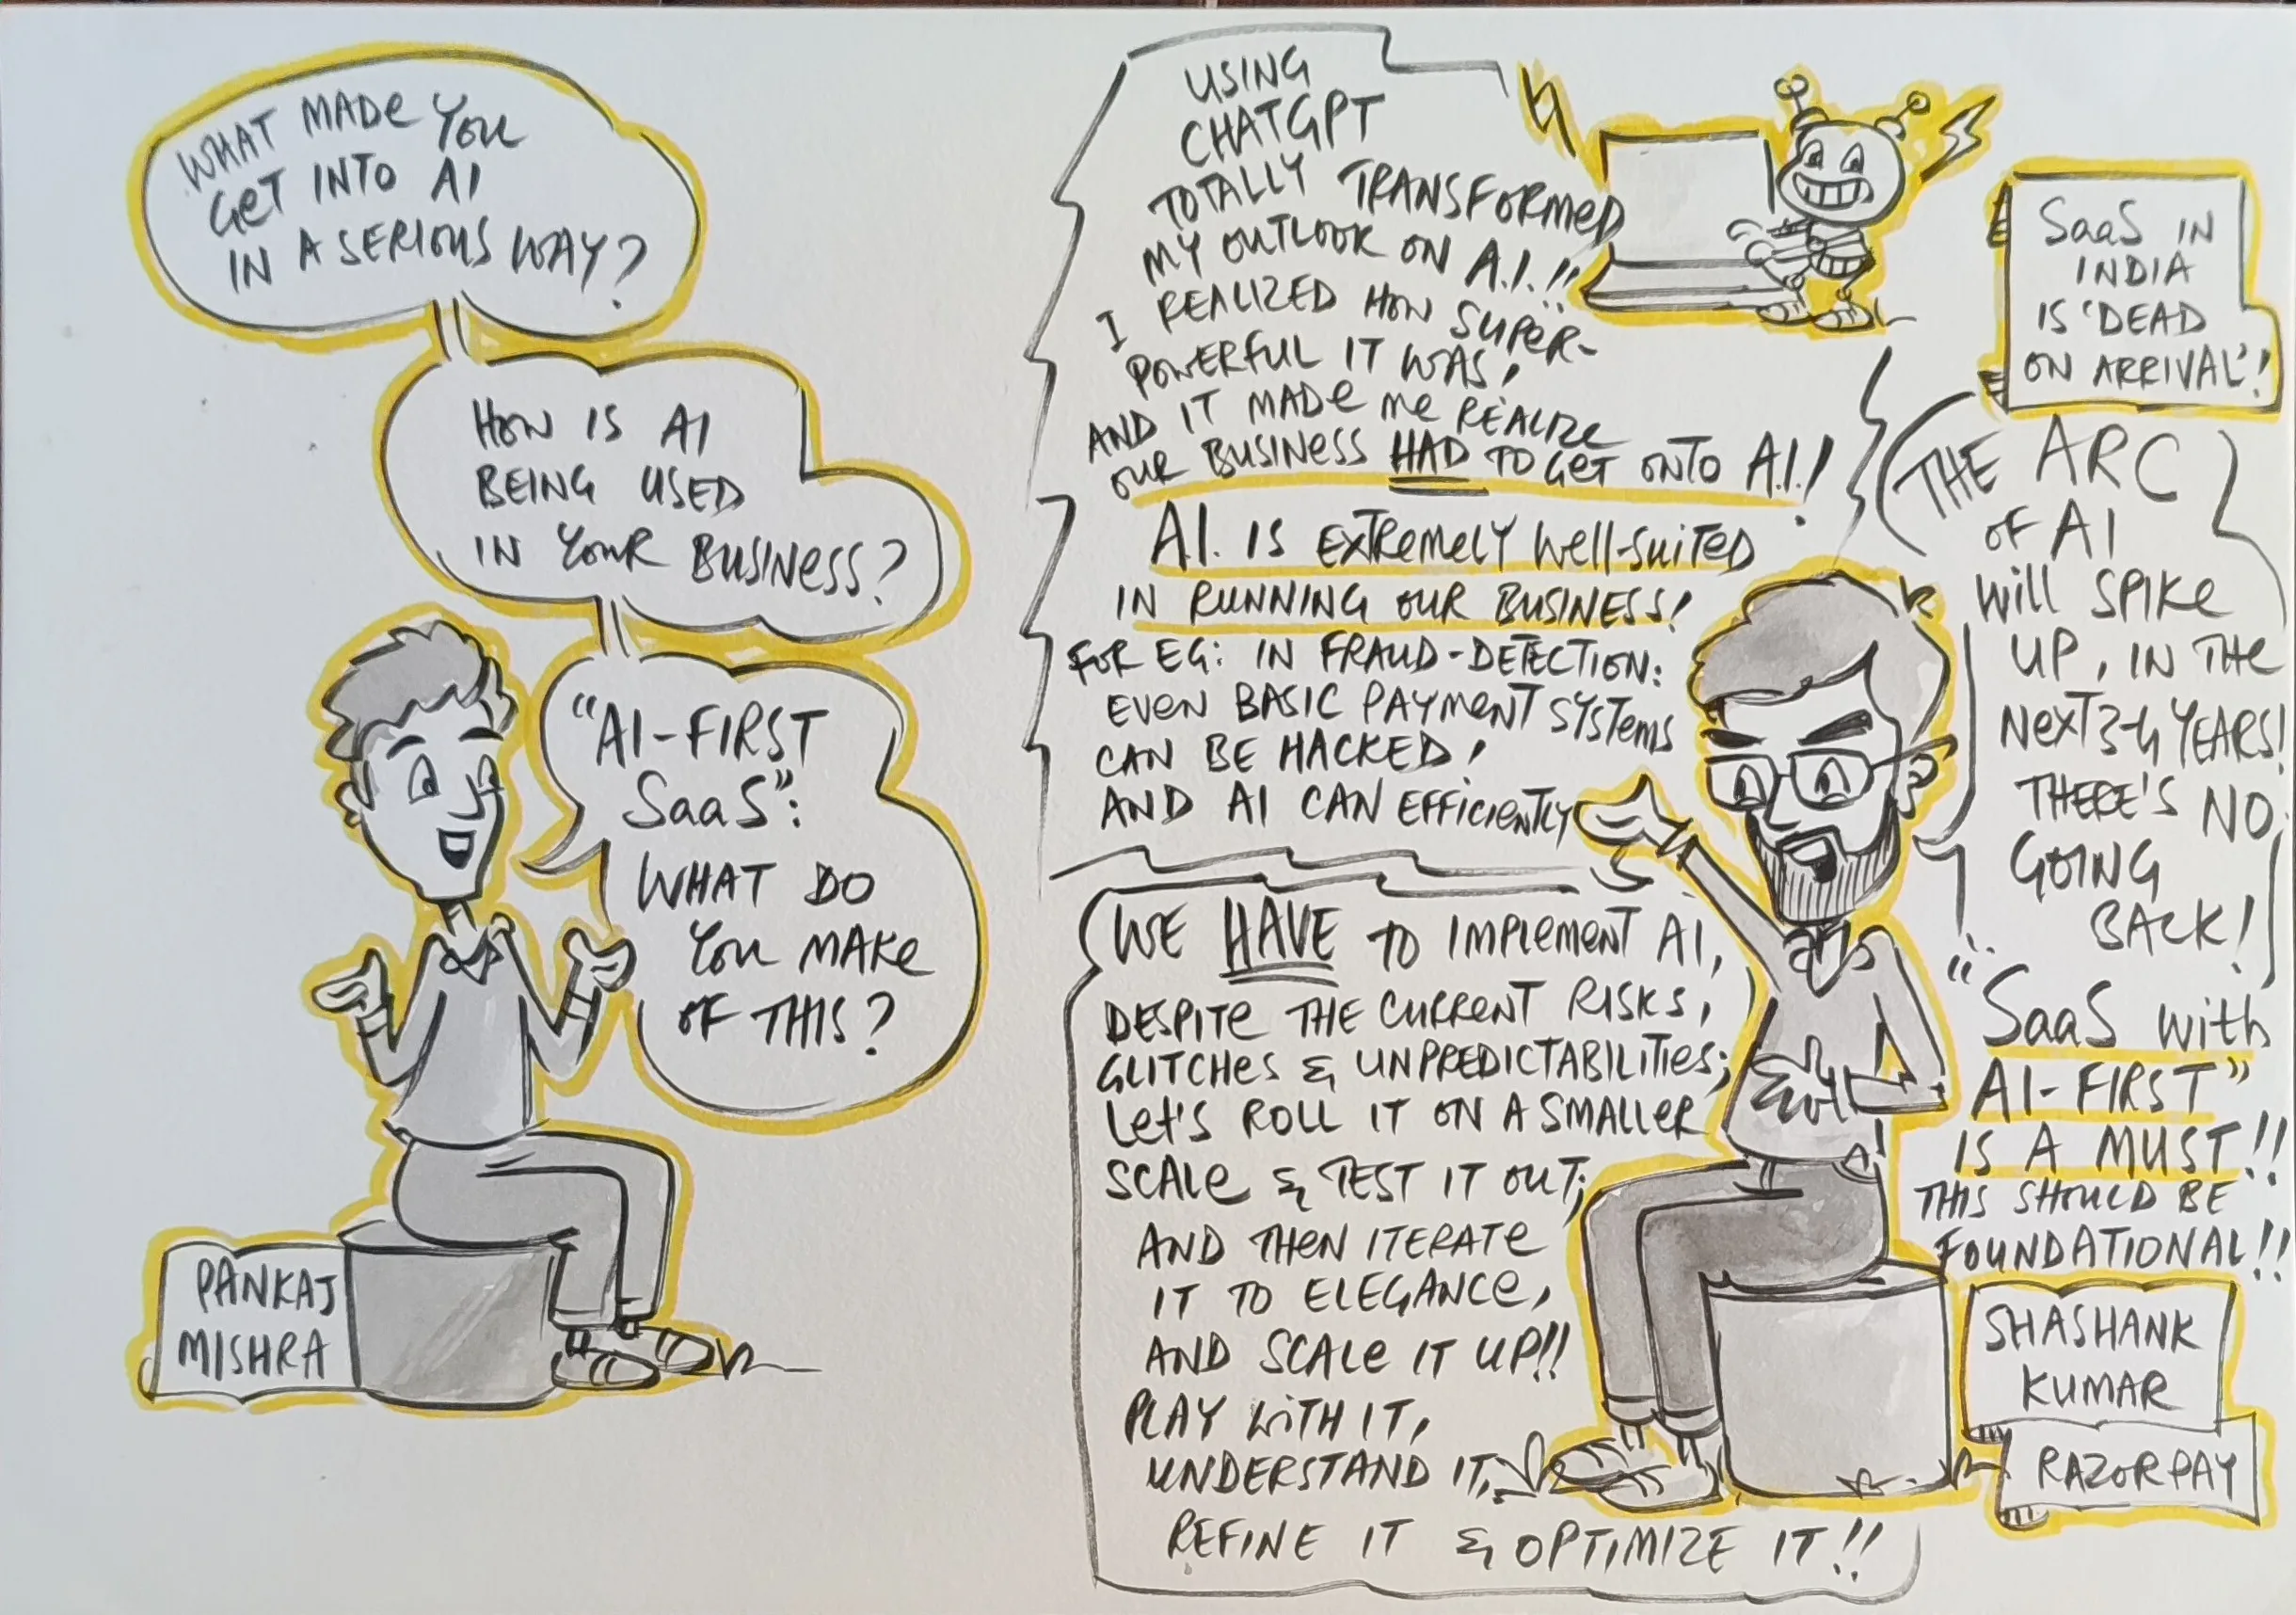 WHAT MADE YOU
GET INTO AI
IN A SERIOUS WAY?
HOW IS AI
BEING USED
IN YOUR BUSINESS?
"AI-FIRST
SaaS":
WHAT DO
YOU MAKE
OF THIS?
PANKAJ
MISHRA
USING
CHATGPT
TOTALLY TRANSFORMED
MY OUTLOOK ON A.I.!!
I REALIZED HOW SUPER-
POWERFUL IT WAS!
AND IT MADE ME REALIZE
OUR BUSINESS HAD TO GET ONTO A.I.!
A.I. IS EXTREMELY WELL-SUITED
IN RUNNING OUR BUSINESS!
FOR EG: IN FRAUD-DETECTION:
EVEN BASIC PAYMENT SYSTEMS
CAN BE HACKED!
AND AI CAN EFFICIENTLY
WE HAVE TO IMPLEMENT AI,
DESPITE THE CURRENT RISKS,
GLITCHES & UNPREDICTABILITIES;
LET'S ROLL IT ON A SMALLER
SCALE & TEST IT OUT;
AND THEN ITERATE
IT TO ELEGANCE,
AND SCALE IT UP!!
PLAY WITH IT,
UNDERSTAND IT,
REFINE IT & OPTIMIZE IT!!
SaaS IN
INDIA
IS 'DEAD
ON ARRIVAL'!
THE ARC
OF AI
WILL SPIKE
UP, IN THE
NEXT 3-4 YEARS!
THERE'S NO
GOING
BACK!
"SaaS with
AI-FIRST"
IS A MUST!!
THIS SHOULD BE
FOUNDATIONAL!!
SHASHANK
KUMAR
RAZORPAY